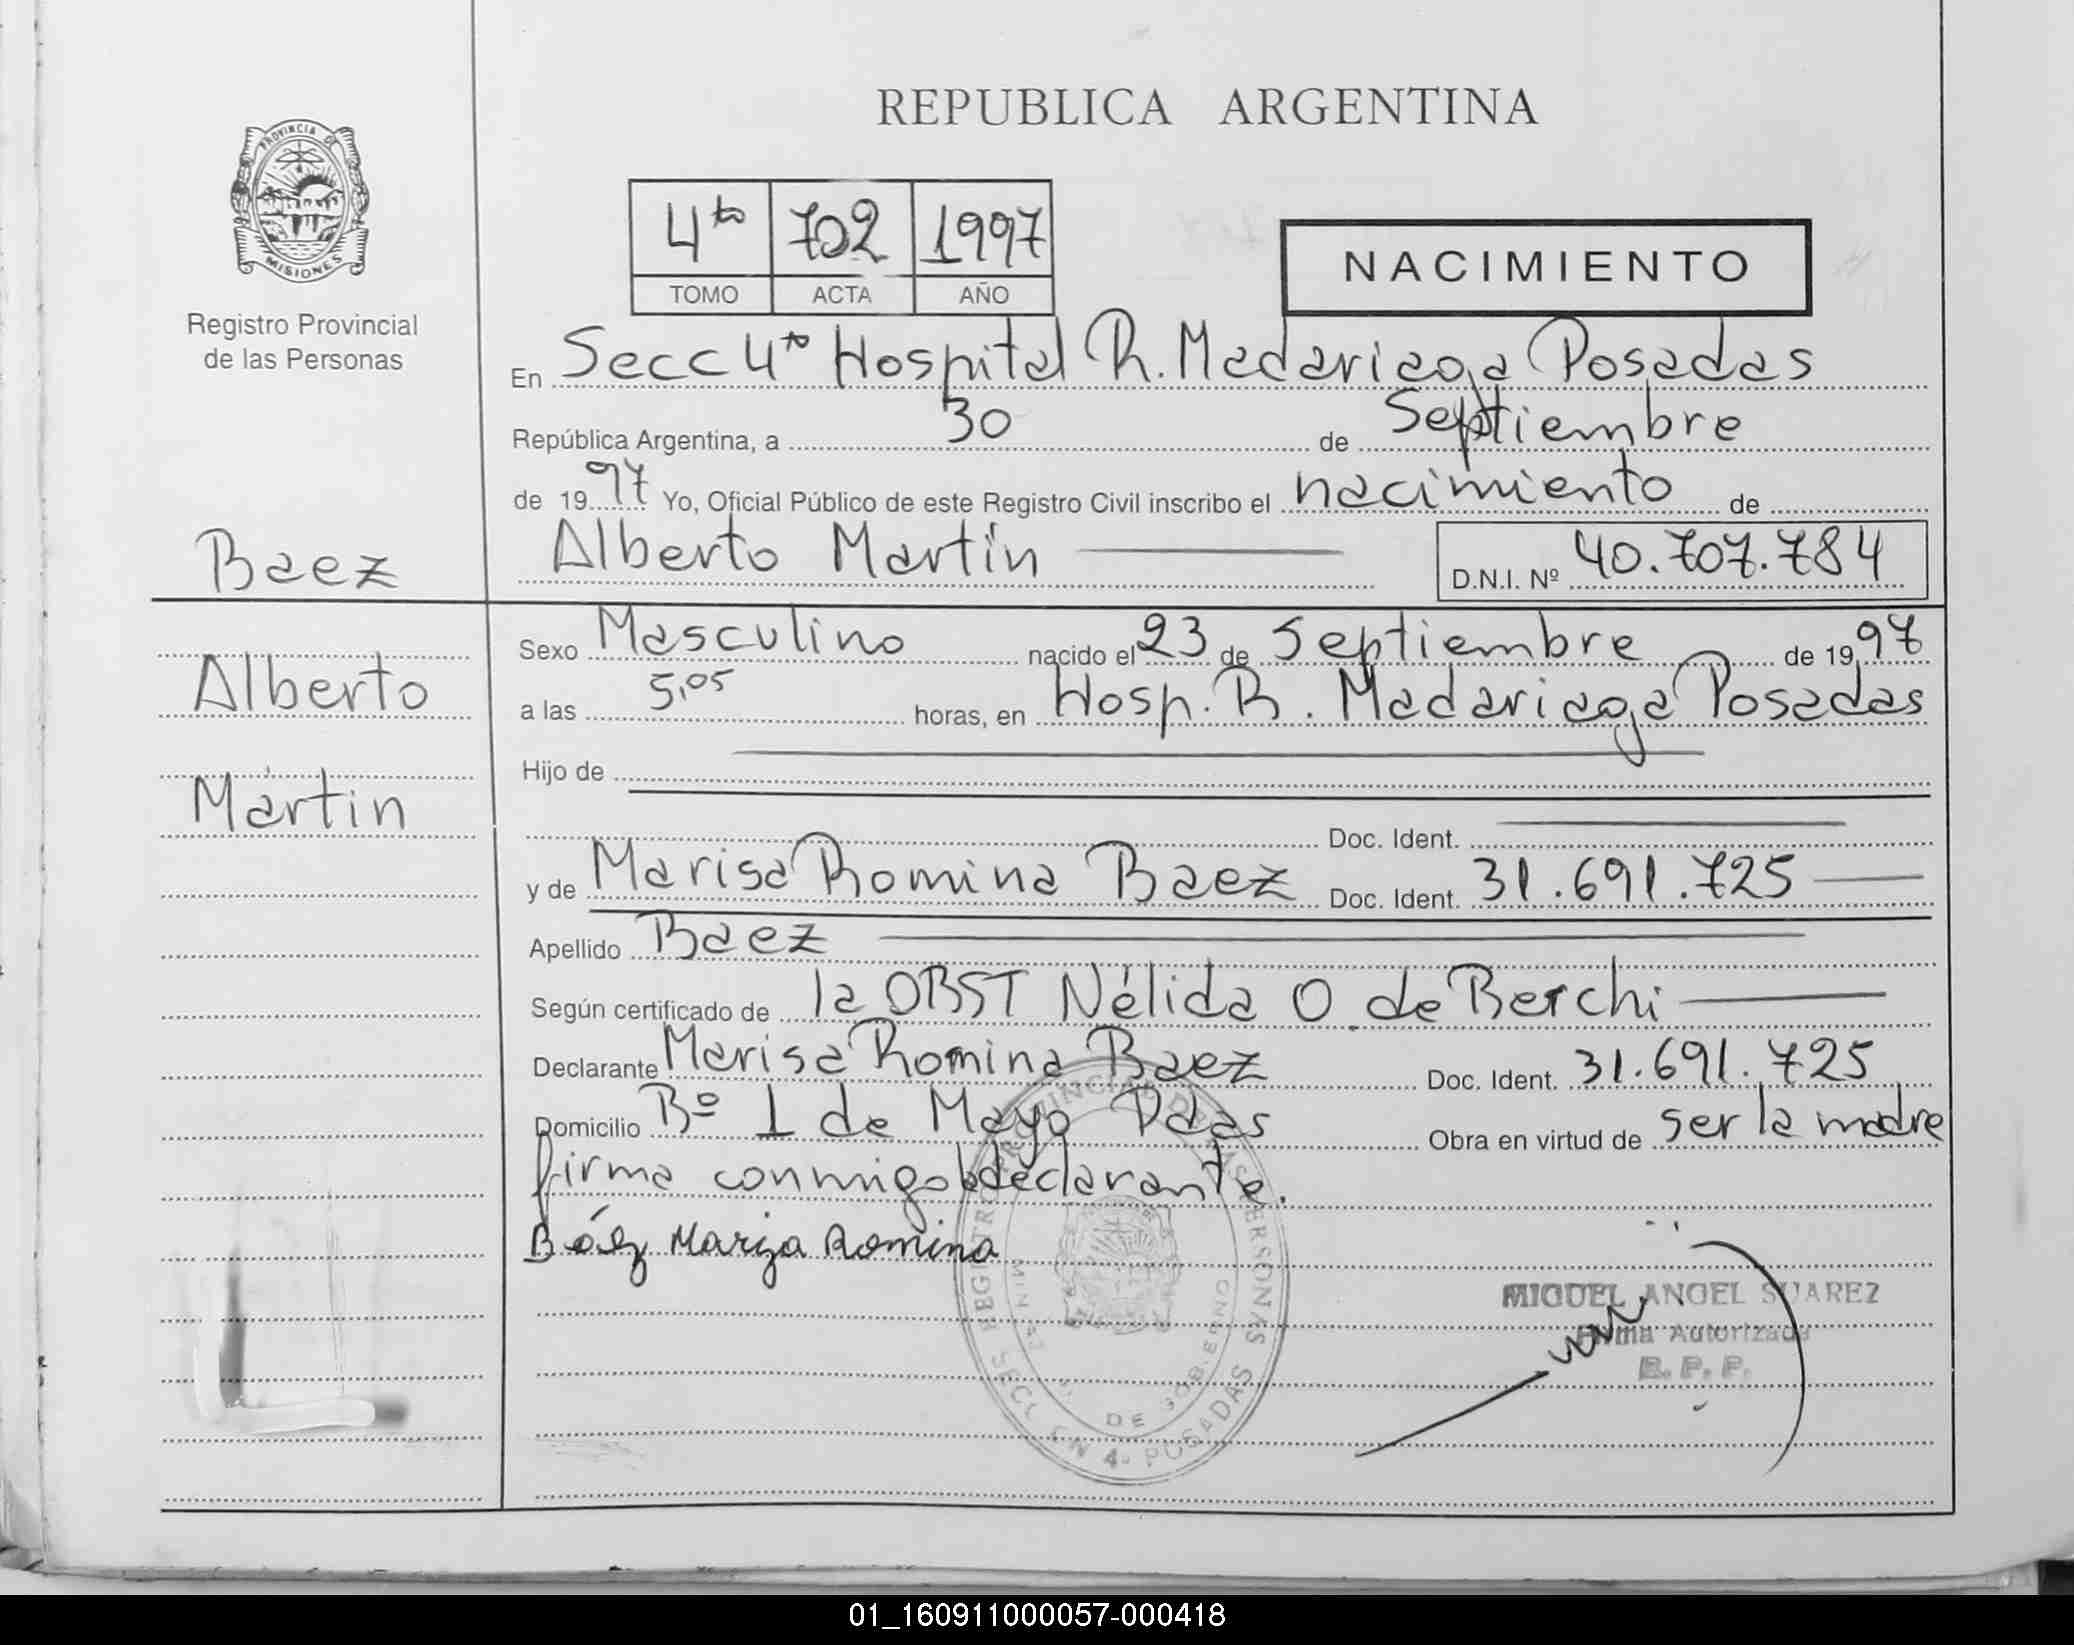 REPUBLICA ARGENTINA
PROVINCIA DE
MISIONES
Registro Provincial
de las Personas
4to 702 1997
TOMO ACTA AÑO
NACIMIENTO
En Secc 4to Hospital R. Madariaga Posadas
República Argentina, a 30 de Septiembre
de 1997 Yo, Oficial Público de este Registro Civil inscribo el nacimiento de
Alberto Martín D.N.I. Nº 40.707.784
Baez
Alberto
Martin
Sexo Masculino nacido el 23 de Septiembre de 1997
a las 5,05 horas, en Hosp. R. Madariaga Posadas
Hijo de
Doc. Ident.
y de Marisa Romina Baez Doc. Ident. 31.691.725
Apellido Baez
Según certificado de la OBST Nélida O. de Berchi
Declarante Marisa Romina Baez Doc. Ident. 31.691.725
Domicilio Bº 1 de Mayo Pdas Obra en virtud de ser la madre
firma conmigo declarante.
Báez Mariza Romina
REGISTRO PROVINCIAL DE LAS PERSONAS
SECCION 4º POSADAS
DE GOBIERNO
MIGUEL ANGEL SUAREZ
Firma Autorizada
R. P. P.
01_160911000057-000418